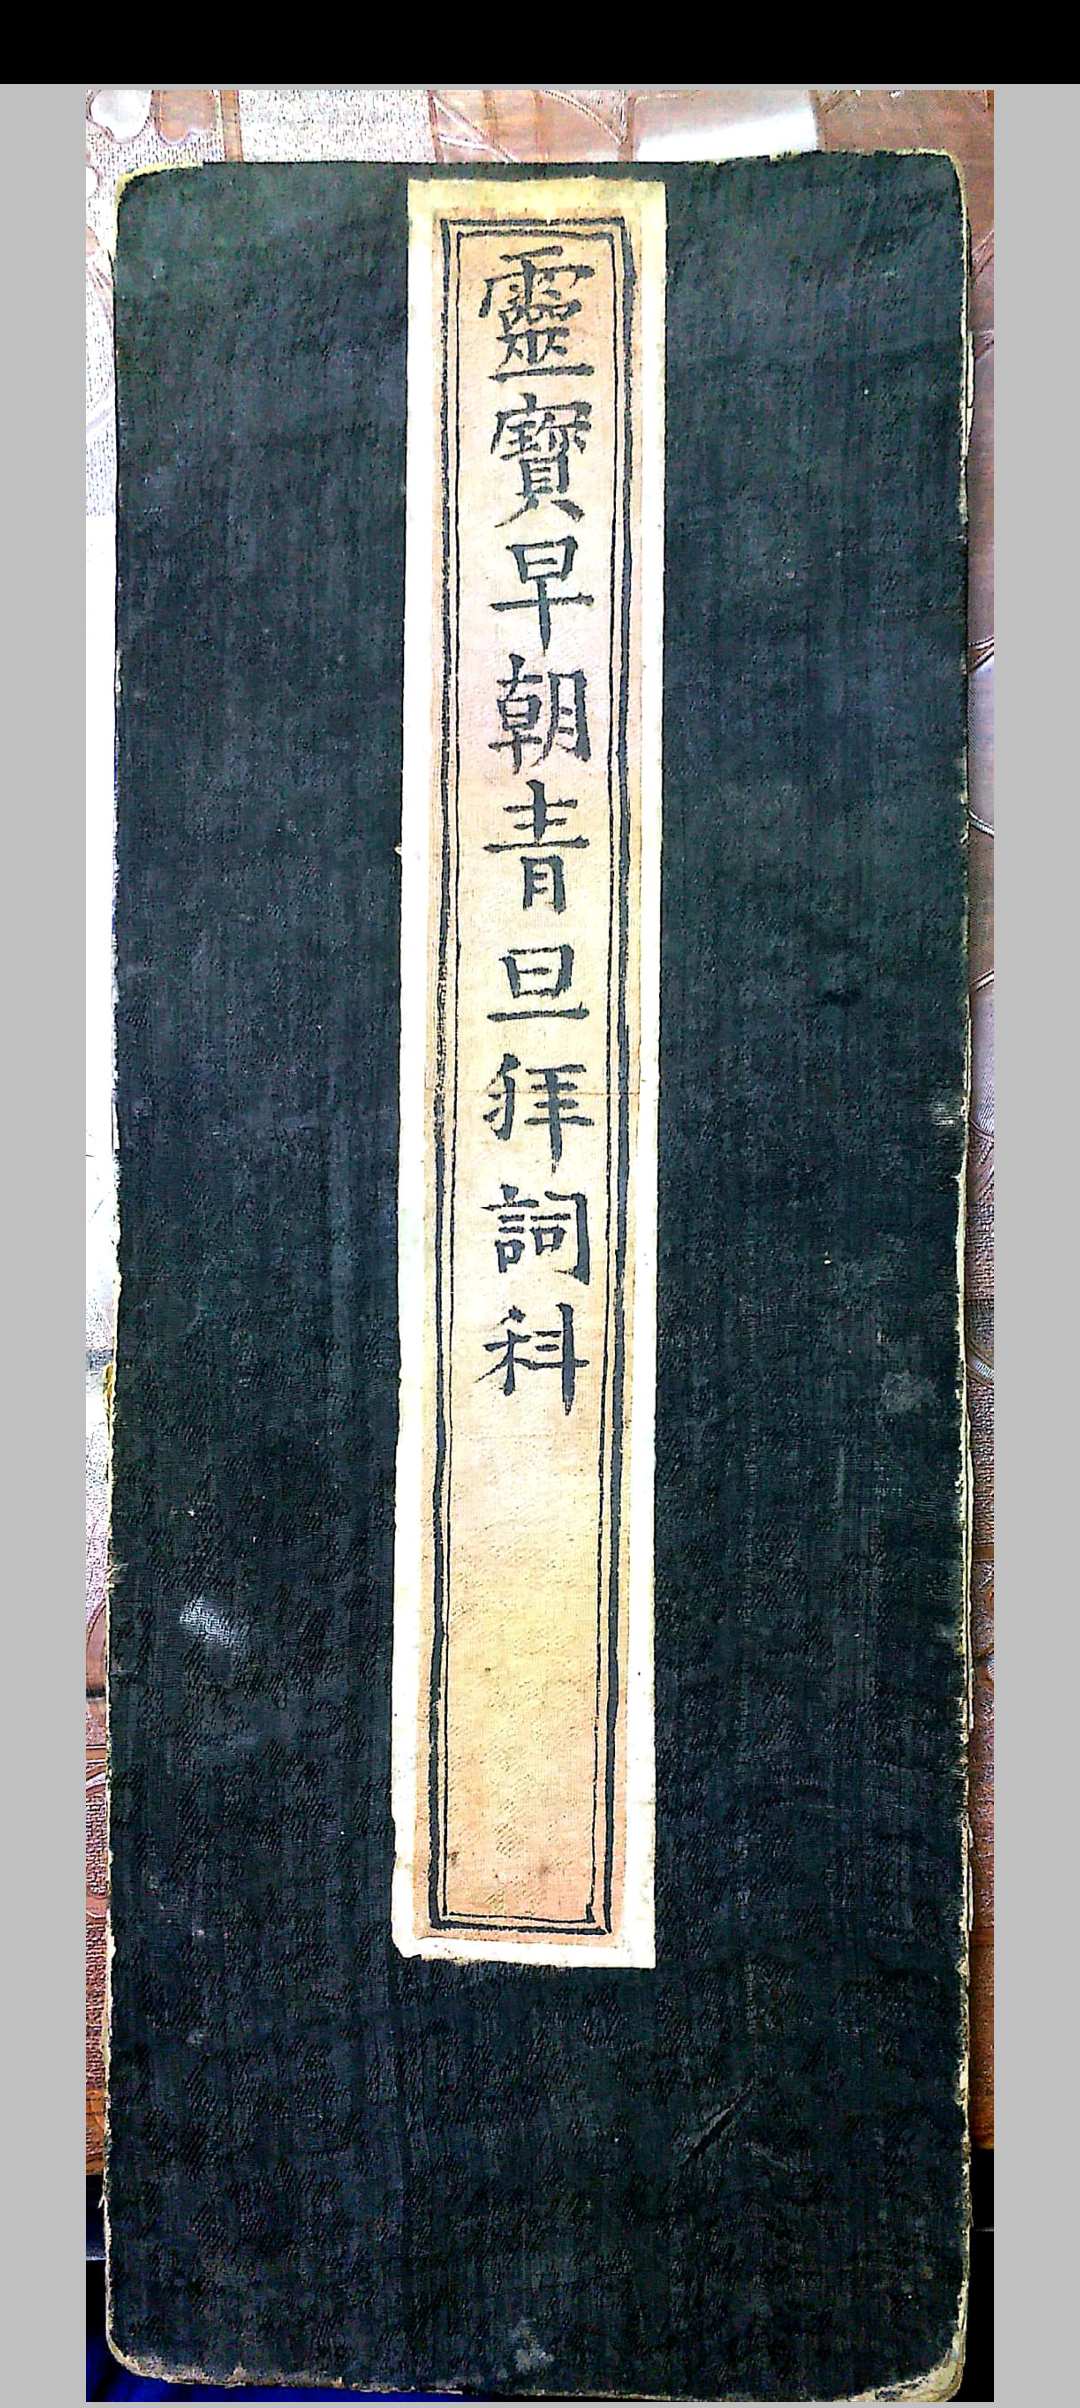 靈寶早朝青旦拜詞科